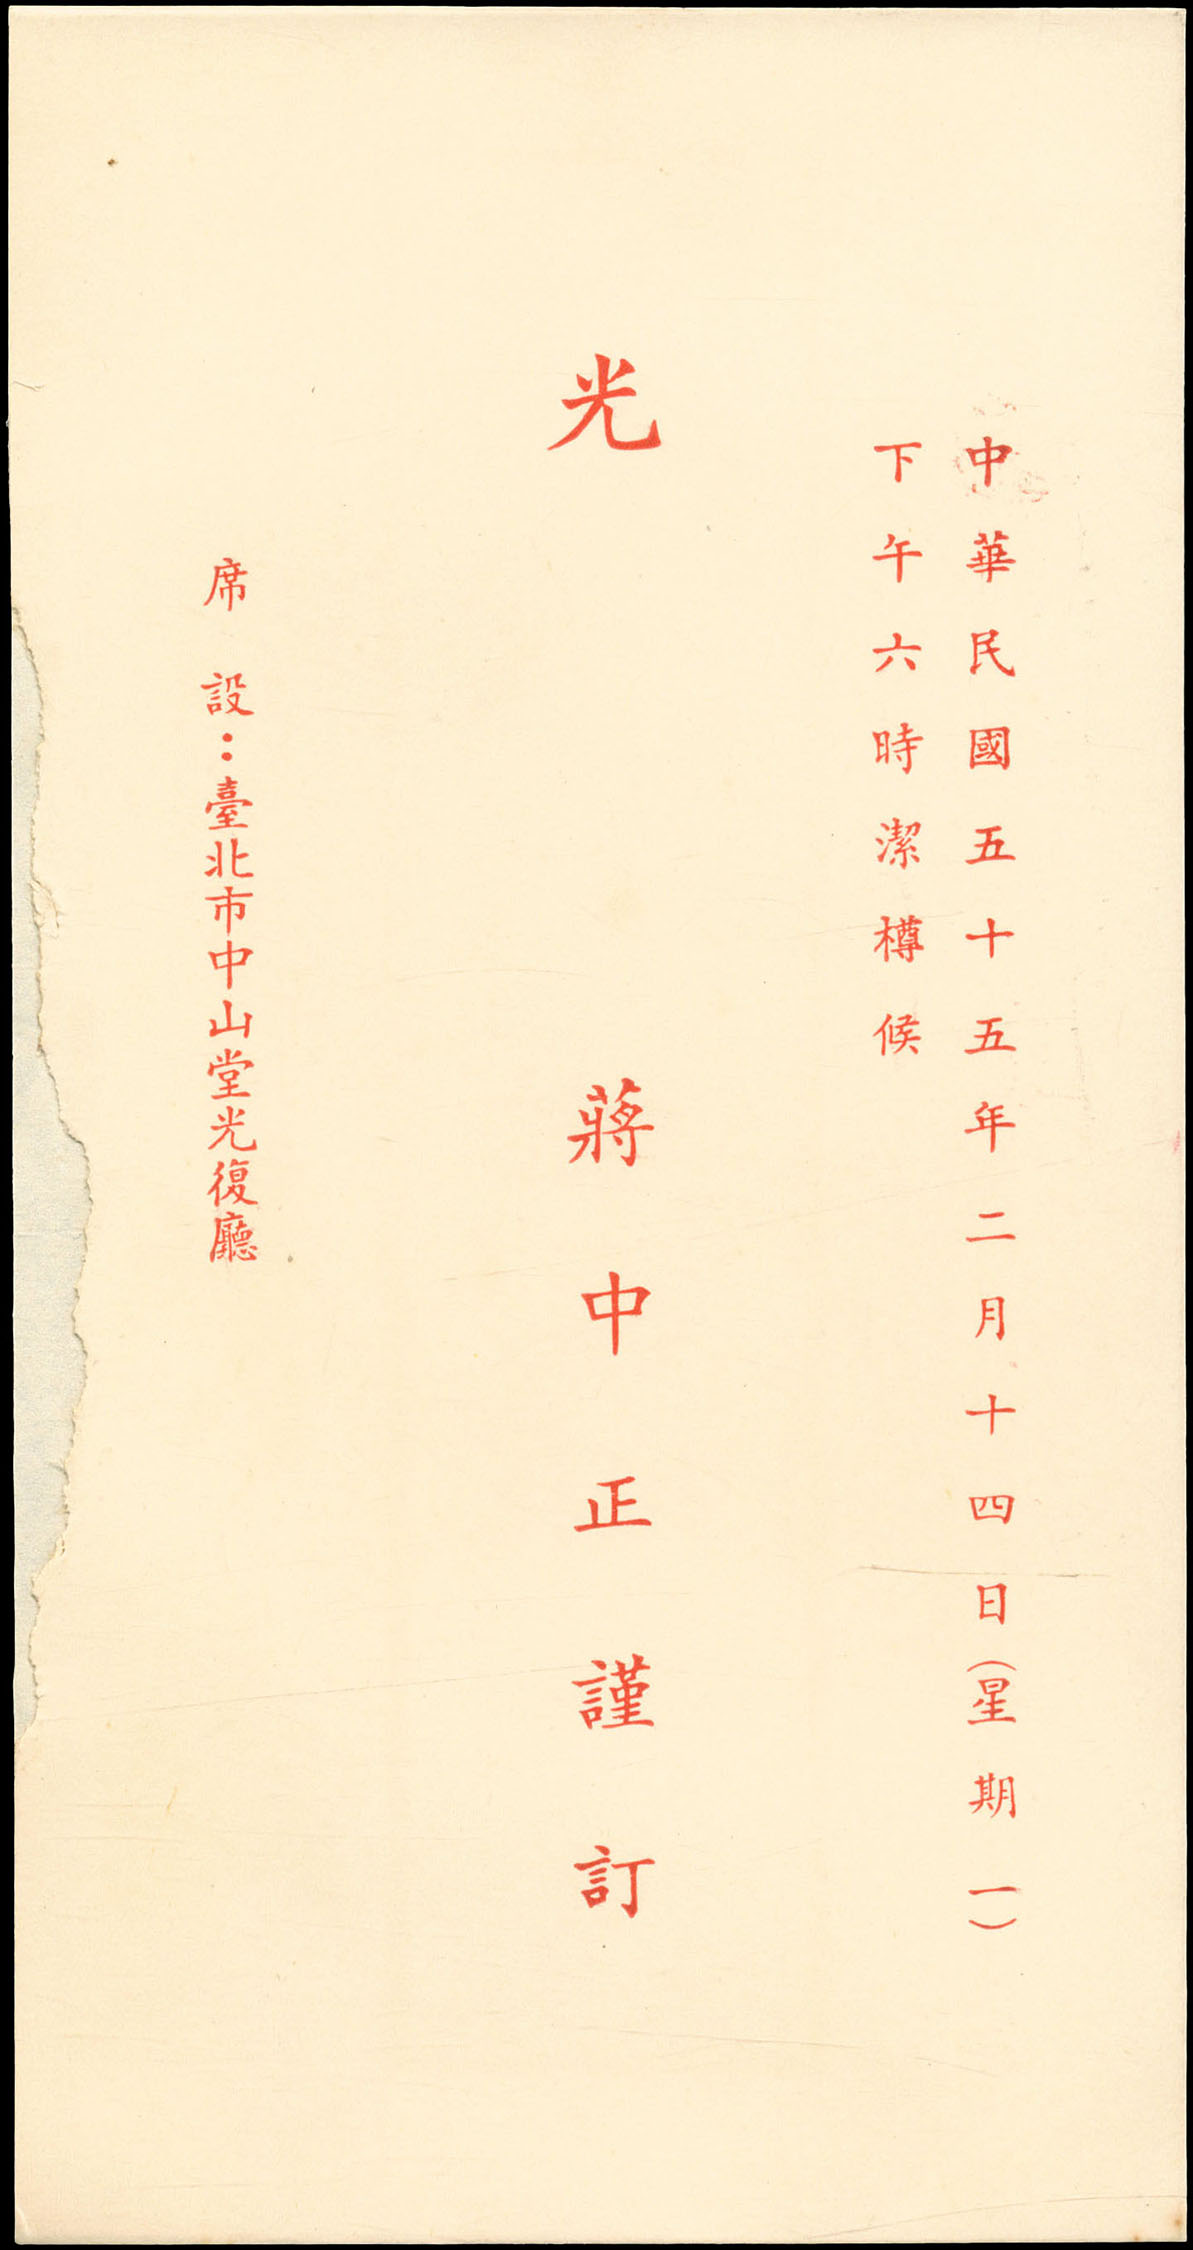 中華民國五十五年二月十四日(星期一)
下午六時潔樽候
光
蔣中正謹訂
席 設：臺北市中山堂光復廳